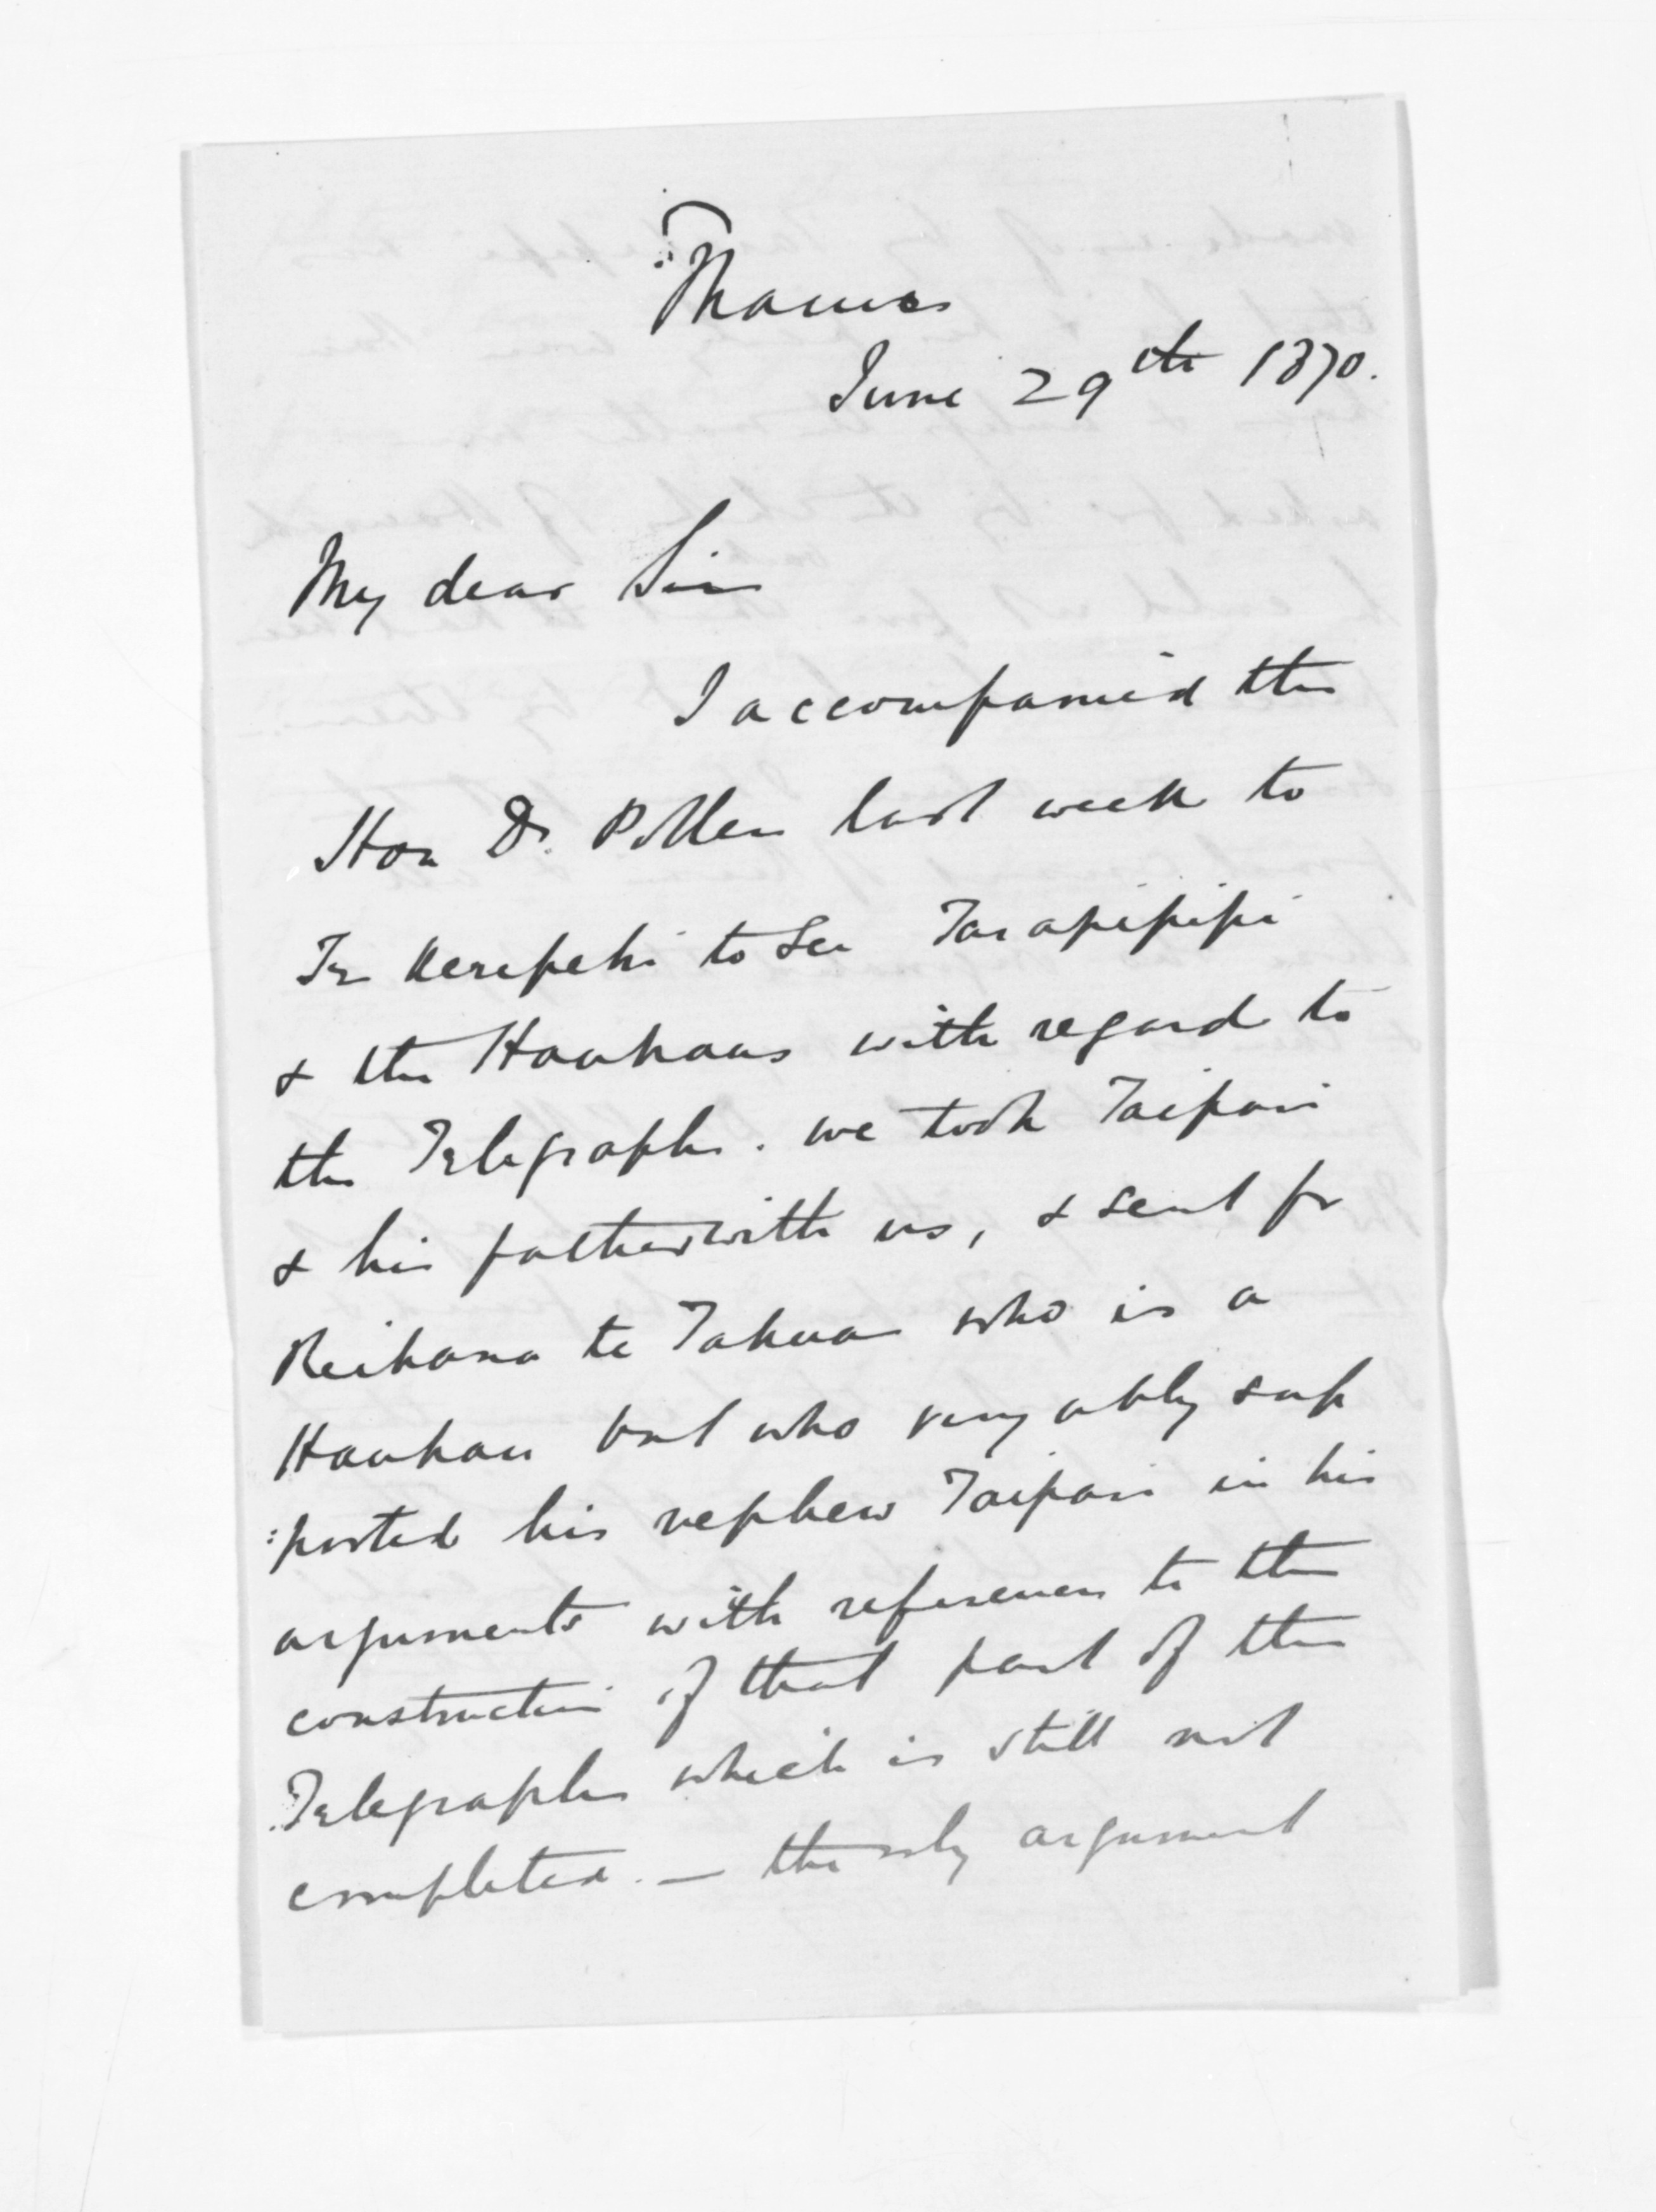 Thames
June 29th 1870.
My dear Sir
I accompanied the
Hon Dr. Pollen last week to
Te Kerepehi to see Tarapipipi
& the Hauhaus with regard to
the Telegraph. we took Taipari
& his father with us, & sent for
Reihana te Takua who is a
Hauhau but who very ably sup
:ported his nephew Taipari in his
arguments with reference to the
construction of that part of the
Telegraph which is still not
completed. — the only argument